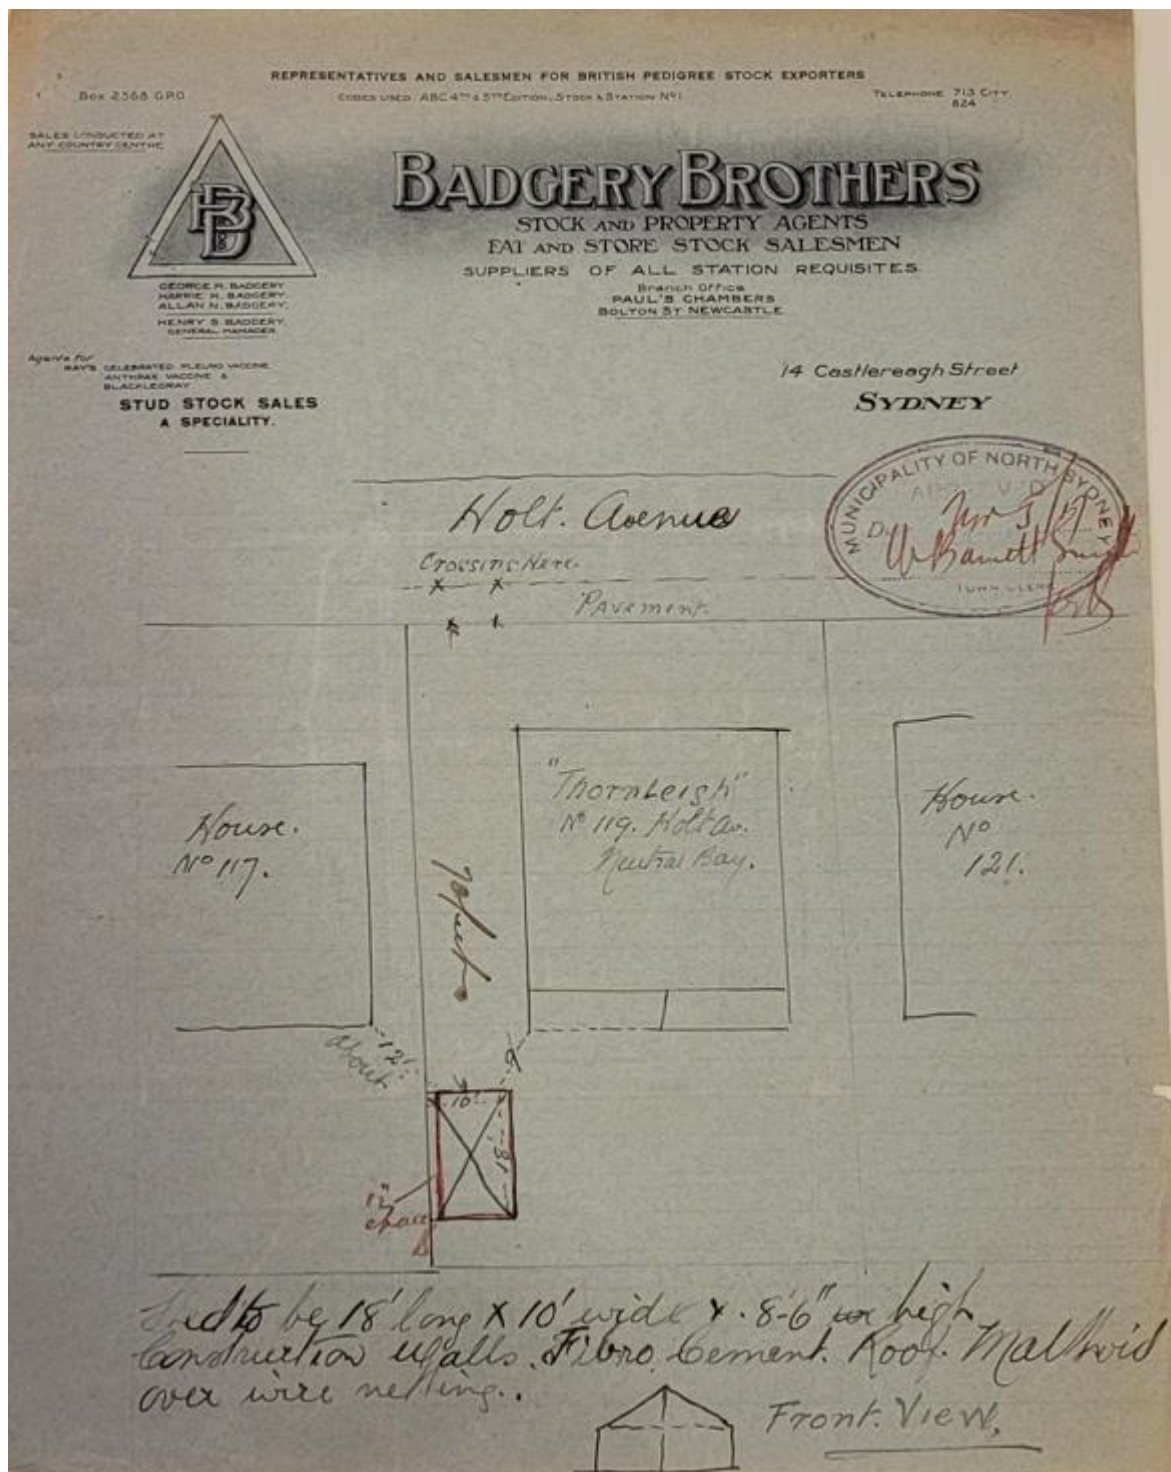 REPRESENTATIVES AND SALESMEN FOR BRITISH PEDIGREE STOCK EXPORTERS
Box 2568 G.P.O
CODES USED: ABC 4TH & 5TH EDITION. STOCK & STATION No 1
TELEPHONE 713 CITY.
824
SALES CONDUCTED AT
ANY COUNTRY CENTRE
BB
BADGERY BROTHERS
STOCK AND PROPERTY AGENTS
FAT AND STORE STOCK SALESMEN
SUPPLIERS OF ALL STATION REQUISITES.
Branch Office
PAUL'S CHAMBERS
BOLTON ST NEWCASTLE
GEORGE H. BADGERY
HARRIE H. BADGERY.
ALLAN N. BADGERY.
HENRY S. BADGERY.
GENERAL MANAGER.
Agents for
RAY'S CELEBRATED PLEURO VACCINE
ANTHRAX VACCINE &
BLACKLEGRAY
STUD STOCK SALES
A SPECIALITY.
14 Castlereagh Street
SYDNEY
MUNICIPALITY OF NORTH SYDNEY
TOWN CLERK
Holt. Avenue
Crossing Here.
Pavement.
House.
No 117.
"Thornleigh"
No 119. Holt Av.
Neutral Bay.
House.
No
121.
12'
About
10'
18'
1½"
space
Shed to be 18' long X 10' wide X. 8'-6" high
Construction Walls. Fibro Cement. Roof. Malthoid
over wire netting..
Front. View.